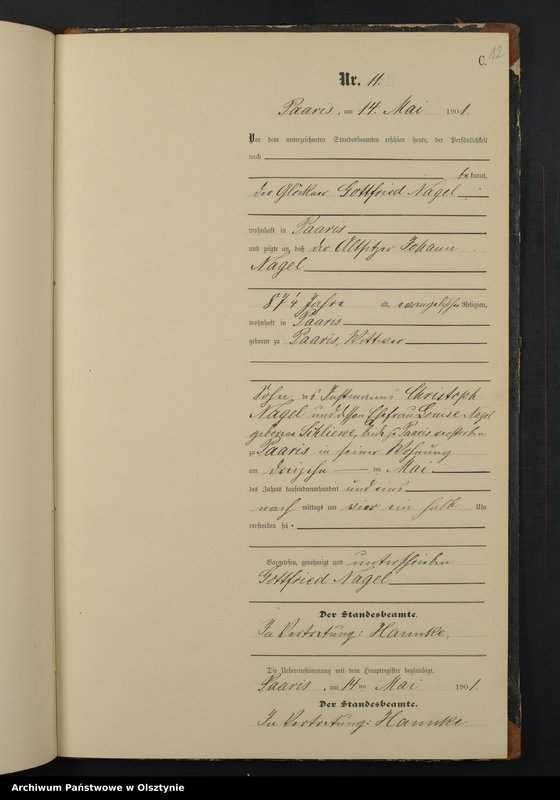 C. 12
Nr. 11.
Paaris, am 14. Mai 1901.
Vor dem unterzeichneten Standesbeamten erschien heute, der Persönlichkeit
nach
be kannt,
der Glöckner Gottfried Nagel
wohnhaft in Paaris
und zeigte an, daß der Altsitzer Johann
Nagel
87 1/4 Jahre alt, evangelischer Religion,
wohnhaft in Paaris
geboren zu Paaris, Wittwer
Sohn des Instmanns Christoph
Nagel und dessen Ehefrau Louise Nagel
geborene Schliewe, beide zu Paaris verstorben
zu Paaris in seiner Wohnung
am dreizehn ten Mai
des Jahres tausendneunhundert und eins
nach mittags um vier ein halb Uhr
verstorben sei.
Vorgelesen, genehmigt und unterschrieben
Gottfried Nagel
Der Standesbeamte.
In Vertretung: Hannke.
Die Uebereinstimmung mit dem Hauptregister beglaubigt.
Paaris, am 14 ten Mai 1901.
Der Standesbeamte.
In Vertretung: Hannke
Archiwum Państwowe w Olsztynie